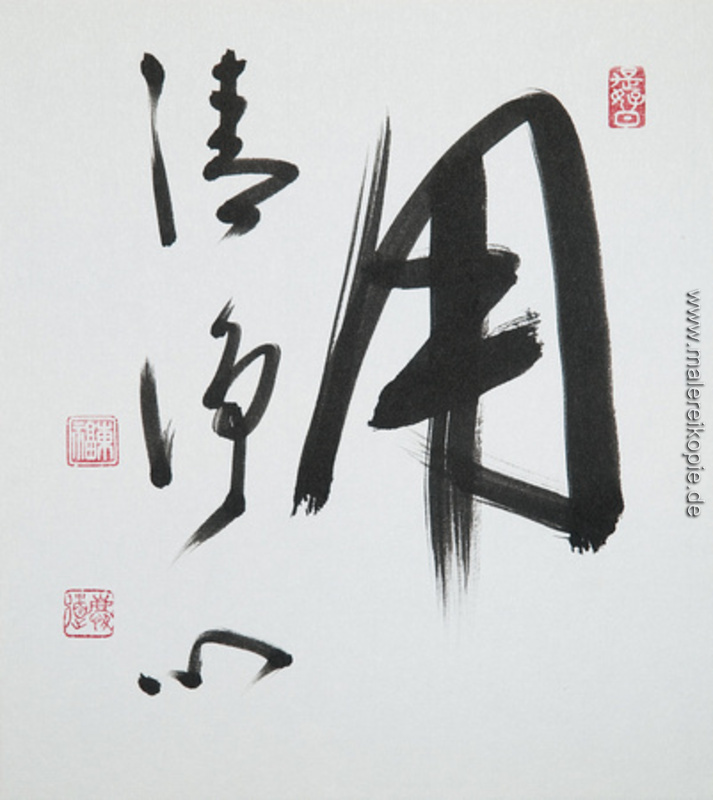 用
清淨心
www.malereikopie.de